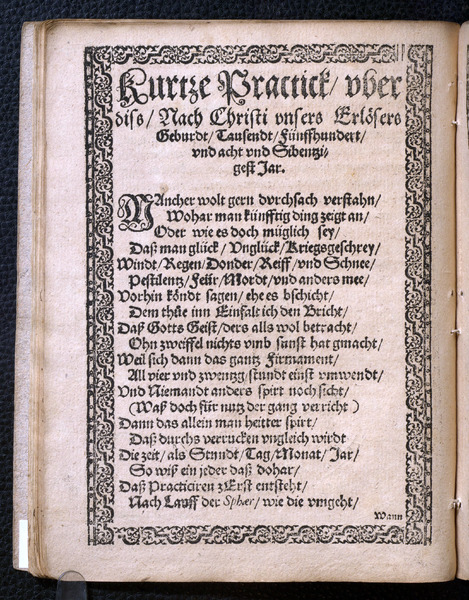 Kurtze Practick/ vber
diss/ Nach Christi vnsers Erlösers
Geburdt/ Tausendt/ Fünffhundert/
vnd acht vnd Sibentzi-
gest Jar.
MAncher wolt gern dvrchsach verstahn/
Wohar man künfftig ding zeigt an/
Oder wie es doch müglich sey/
Daß man glück/ Vnglück/ Kriegsgeschrey/
Windt/ Regen/ Donder/ Reiff/ vnd Schnee/
Pestilentz/ Feür/ Mordt/ vnd anders mee/
Vorhin köndt sagen/ ehe es bschicht/
Dem thůe inn Einfalt ich den Bricht/
Daß Gotts Geist/ ders alls wol betracht/
Ohn zweiffel nichts vmb sunst hat gmacht/
Weil sich dann das gantz Firmament/
All vier vnd zwentzg/ stundt einst vmwendt/
Vnd Niemandt anders spirt noch sicht/
(Waß doch für nutz der gang verricht)
Dann das allein man heitter spirt/
Daß durchs verrucken vngleich wirdt
Die zeit/ als Stundt/ Tag/ Monat/ Jar/
So wiß ein jeder daß dohar/
Daß Practiciren zErst entsteht/
Nach Lauff der Sphær/ wie die vmgeht/
Wann